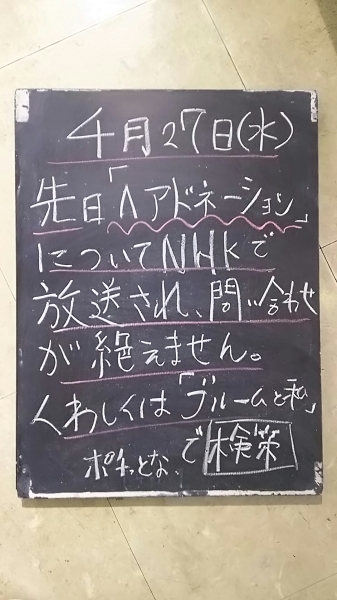 4月27日(水)
先日「ヘアドネーション」
についてNHKで
放送され、問い合わせ
が絶えません。
くわしくは「ブルームと私」
ポチっとな、で検策